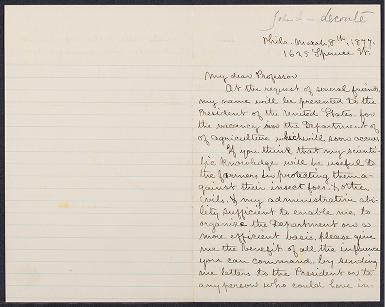 John L. Leconte
Phila. March 8th, 1877.
1625 Spruce St.
My dear Professor
At the request of several friends
my name will be presented to the
President of the United States for
the vacancy in the Department of
of agriculture which will soon occur.
If you think that my scienti-
fic knowledge will be useful to
the farmers in protecting them a-
gainst their insect foes & other
evils, & my administrative abi-
lity sufficient to enable me to
organize the Department on a
more efficient basis, please give
me the benefit of all the influence
you can command, by sending
me letters to the President or to
any person who could have in-